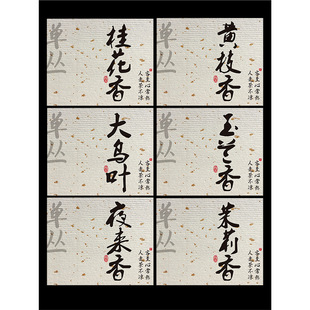 单丛
桂花香
客至心常热
人走茶不凉
单丛
黄枝香
客至心常热
人走茶不凉
单丛
大乌叶
客至心常热
人走茶不凉
单丛
玉兰香
客至心常热
人走茶不凉
单丛
夜来香
客至心常热
人走茶不凉
单丛
茉莉香
客至心常热
人走茶不凉